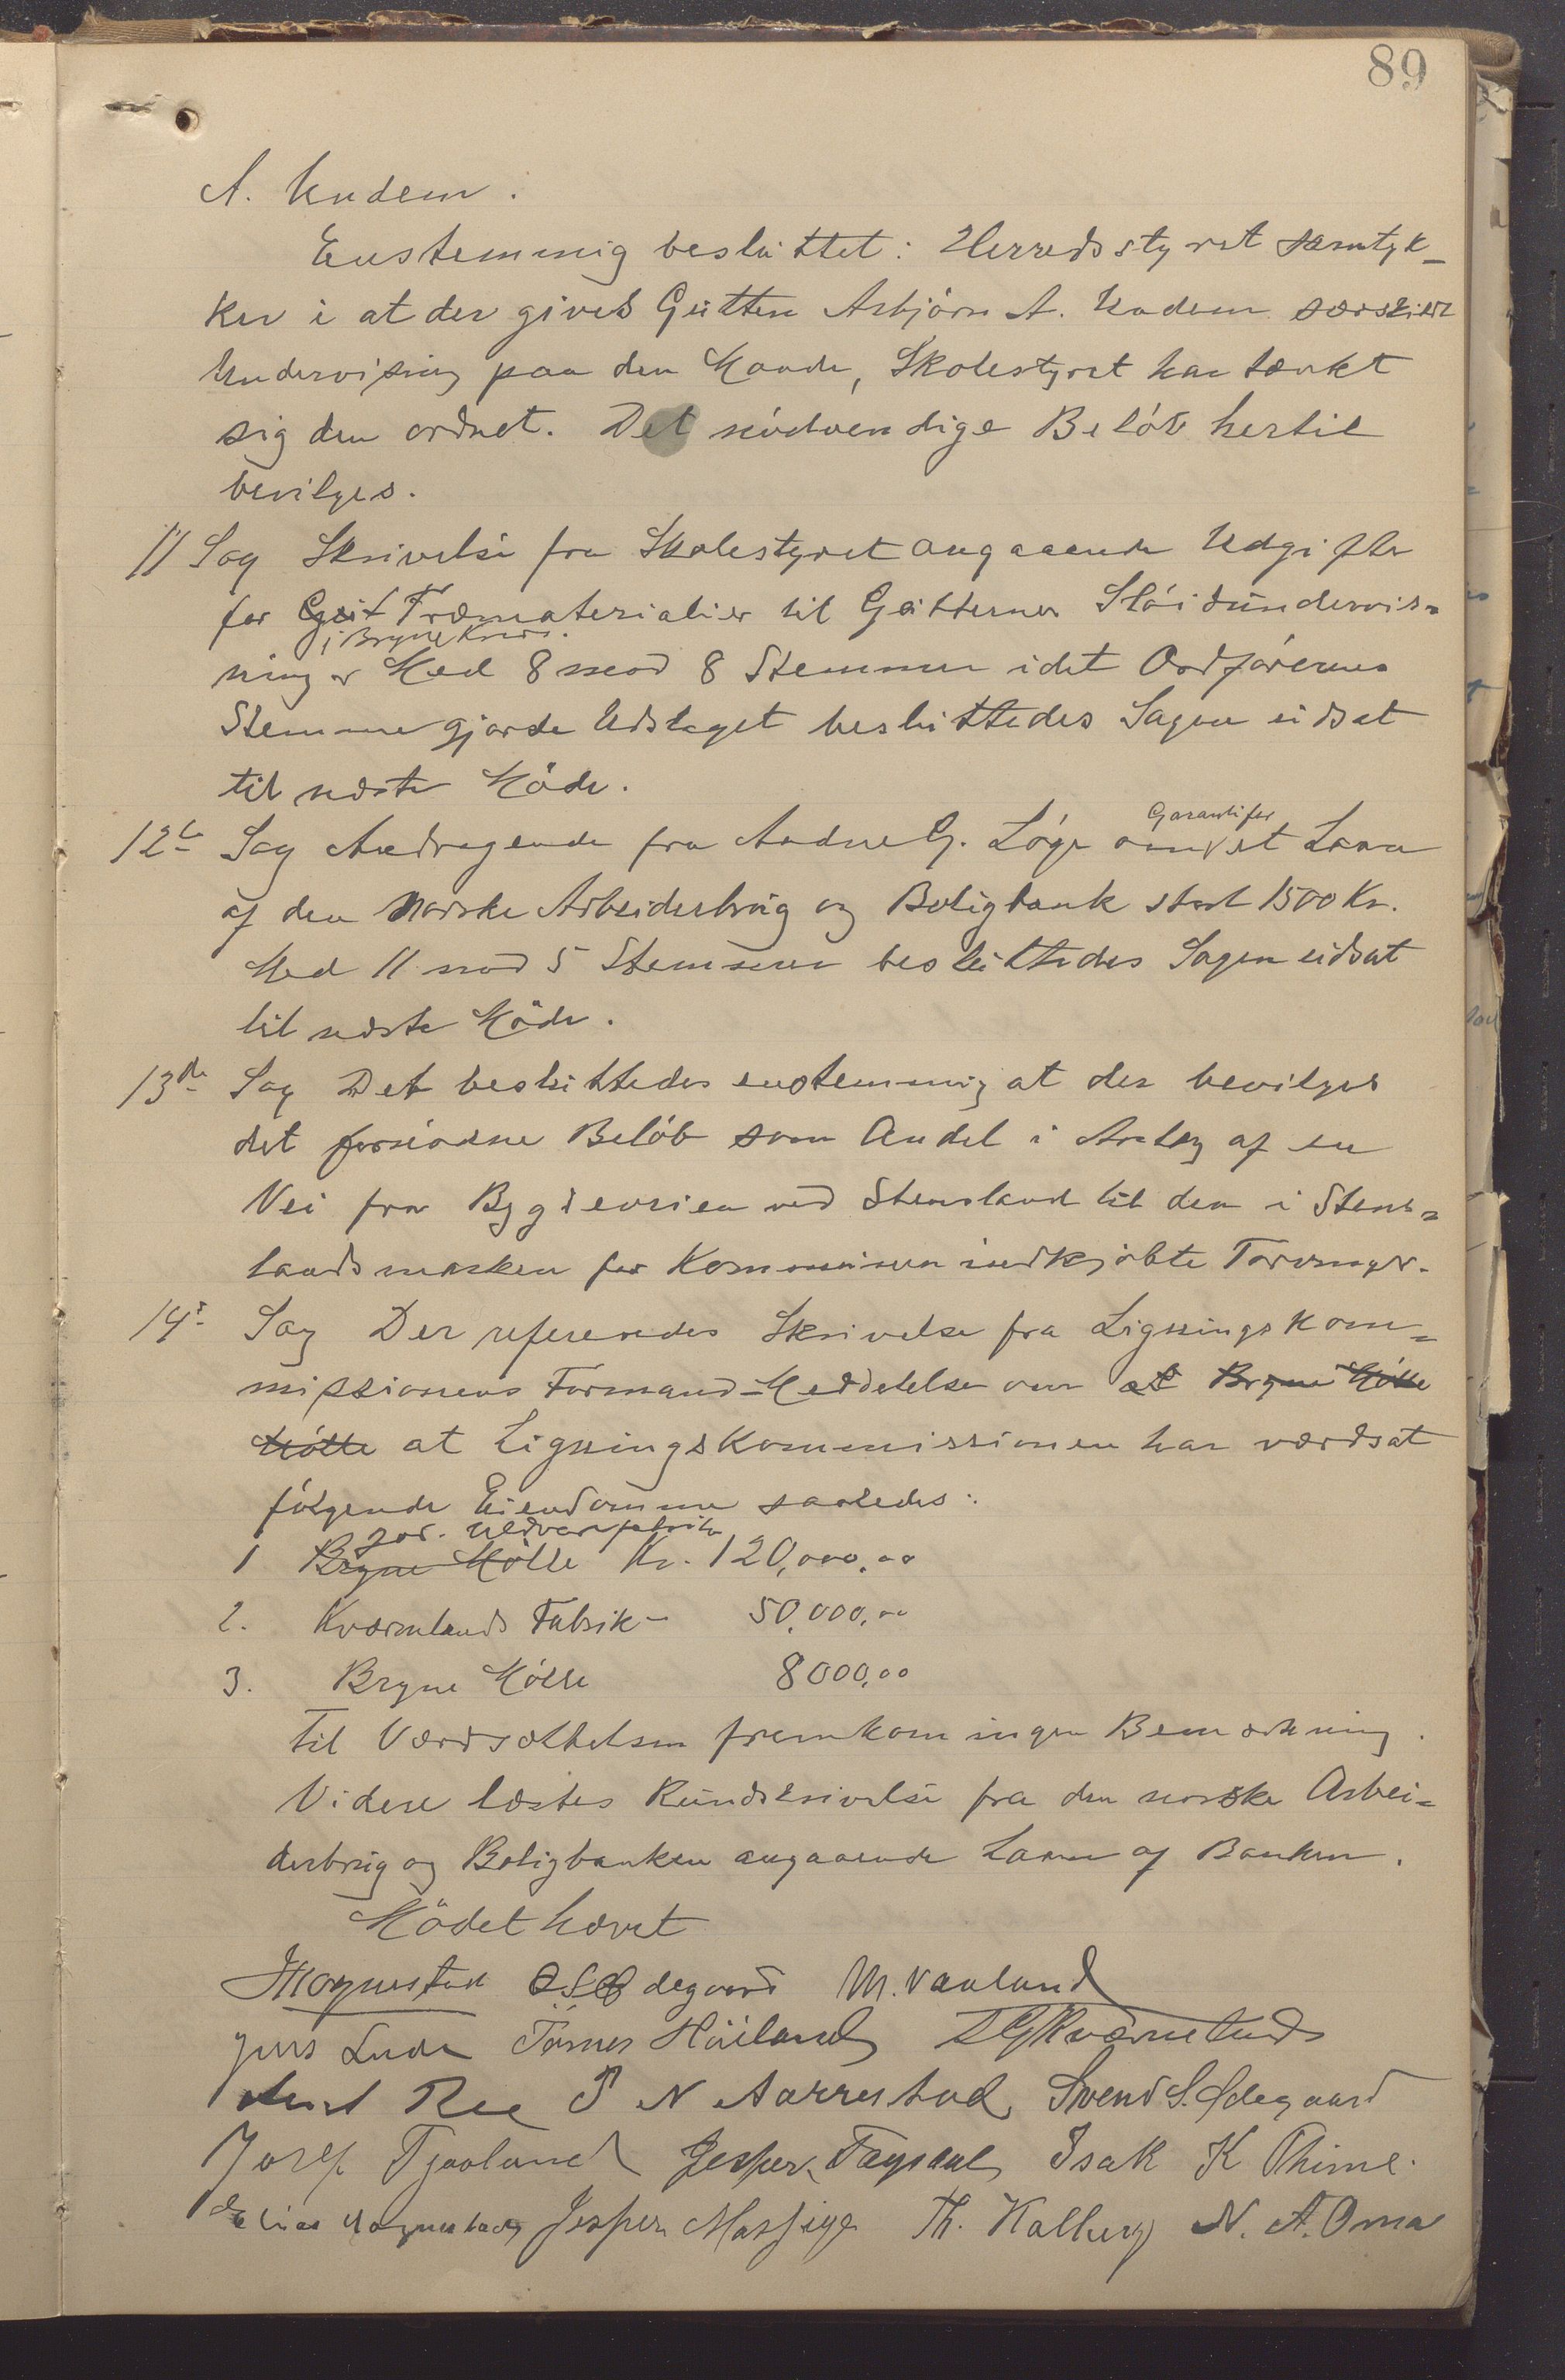 89
A. Undem.
Enstemmig besluttet: Herredsstyret samtyk-
ker i at der gives Gutten Asbjørn A. Undem særskilt
Undervisning paa den Maade, Skolestyret har tænkt
sig den ordnet. Det nødvendige Beløb hertil
bevilges.
11 Sag Skrivelse fra Skolestyret angaaende Udgifter
for Træmaterialier til Gutternes Sløidundervis=
i Bryne Kreds.
ning Med 8 mod 8 Stemmer idet Ordførerens
Stemme gjorde Udslaget besluttedes Sagen udsat
til næste Møde.
Garanti for
12te Sag Andragende fra Andne G. Løge om et Laan
af den norske Arbeiderbrug og Boligbank stort 1500 Kr.
Med 11 mod 5 Stemmer besluttedes Sagen udsat
til næste Møde.
13de Sag Det besluttedes enstemmig at der bevilges
det fornødne Beløb som Andel i Anlæg af en
Vei fra Bygdeveien ved Stensland til den i Stens=
landsmarken for Kommunen indkjøbte Torvmyr.
14de Sag Der refereredes Skrivelse fra Ligningskom=
missionens Formand Meddelelse om at Bryne Mølle
Mølle at Ligningskommissionen har værdsat
følgende Eiendomme saaledes:
Jæd. Uldvarefabrik
1 Bryne Mølle Kr. 120,000,00
2. Kværnlands Fabrik - 50,000,00
3. Bryne Mølle 8000,00
Til Værdsættelsen fremkom ingen Bemærkning.
Videre læstes Rundskrivelse fra den norske Arbei=
derbrug og Boligbanken angaaende Laan af Banken.
Mødet hævet
Mognestad O S Ødegaard M. Vauland
Jens Lende Tønnes Høiland Kværneland
Ree P N Aarrestad Svend S. Ødegaard
Josef Tjaaland Jesper Taxdal Isak K Thime.
Elias Mognestad Jesper Mossige Th. Kalberg N. A. Oma